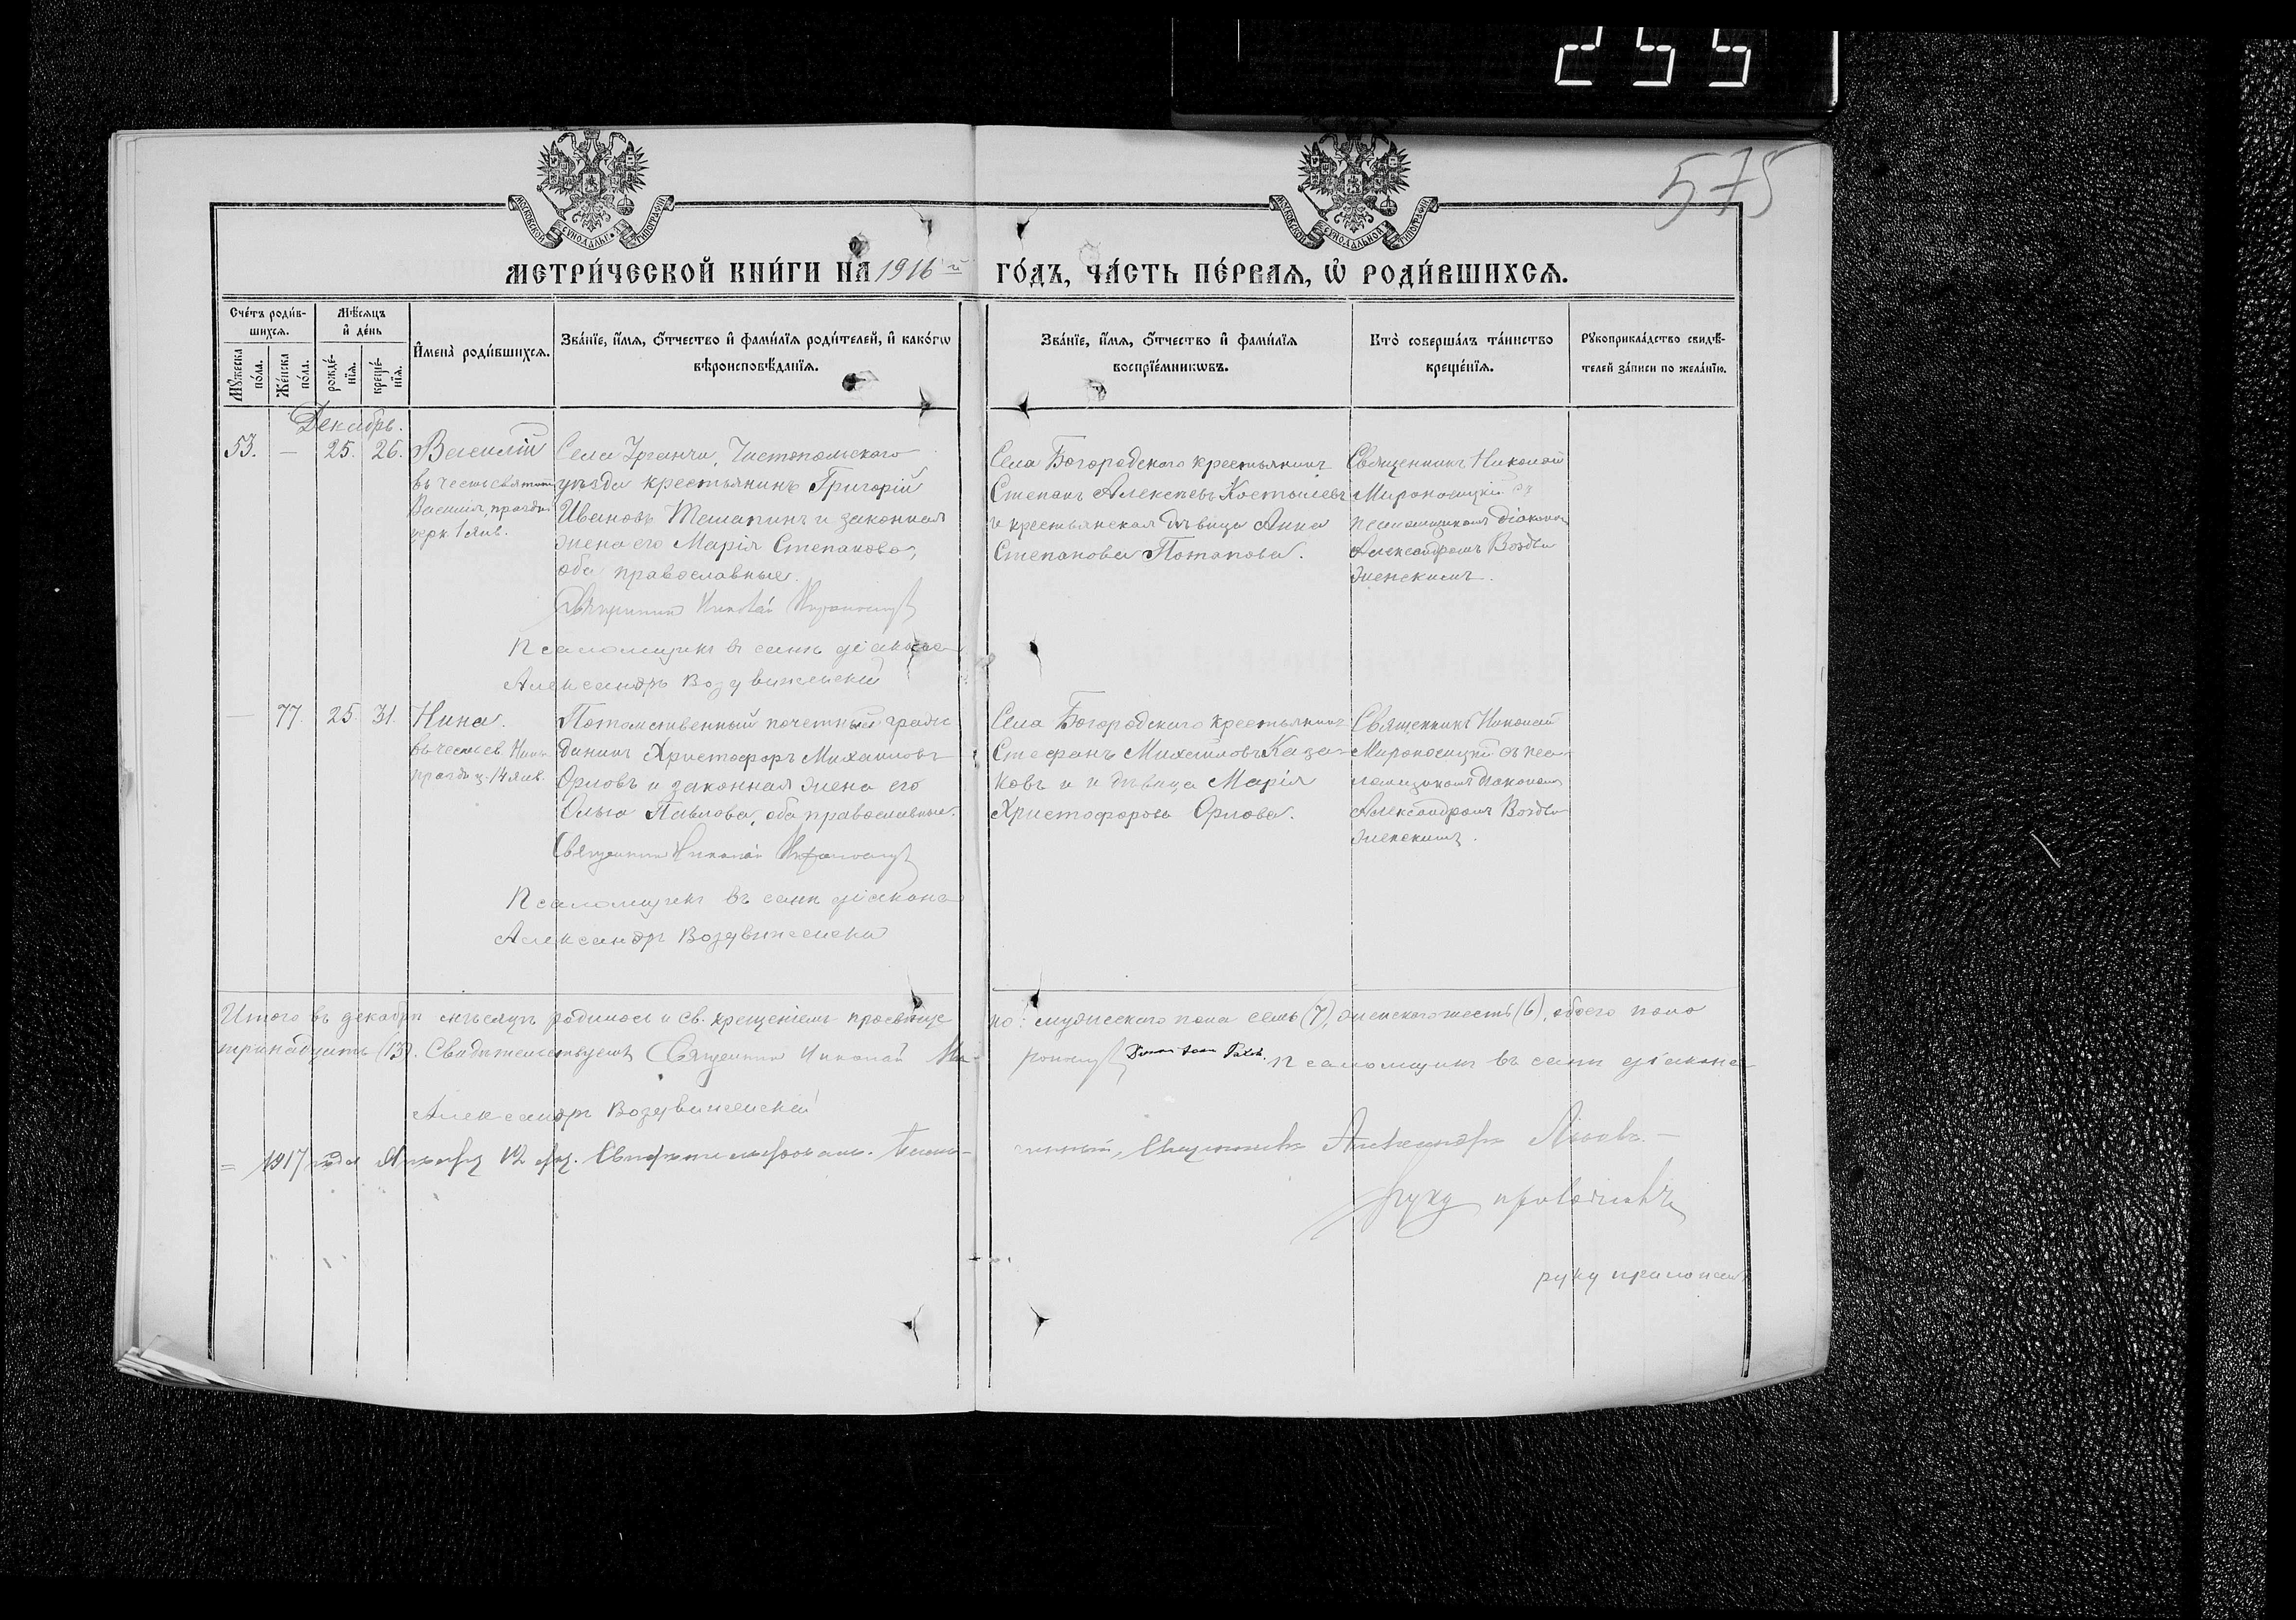 255
575
МОСКОВСКОЙ СѴНОДАЛЬНОЙ ТИПОГРАФІИ
МОСКОВСКОЙ СѴНОДАЛЬНОЙ ТИПОГРАФІИ
МЕТРИ́ЧЕСКОЙ КНИ́ГИ НА 1916 й ГО́ДЪ, ЧА́СТЬ ПЕ́РВАѦ, Ѡ҆ РОДИ́ВШИХСѦ.
Сче́тъ роди́в-
шихсѧ.
Мꙋ́жеска по́ла.
Же́нска по́ла.
Мѣ́сѧцъ
и҆ де́нь
рожде́-
нїѧ.
креще́-
нїѧ.
И҆мена̀ роди́вшихсѧ.
Зва́нїе, и҆́мѧ, ѻ҆́тчество и҆ фами́лїѧ роди́телей, и҆ како́гѡ
вѣроисповѣ́данїѧ.
Зва́нїе, и҆́мѧ, ѻ҆́тчество и҆ фами́лїѧ
воспрїе́мникѡвъ.
Кто̀ соверша́лъ та́инство
креще́нїѧ.
Рꙋкоприкла́дство свидѣ́-
телей за́писи по жела́нїю.
Декабрь.
53. — 25. 26.
Василій
въ честь святого
Василія, праздн.
церк. 1 янв.
Села Урганчи, Чистопольскаго
уѣзда крестьянинъ Григорій
Ивановъ и законная
жена его Марія Степанова,
оба православные.
Священникъ Николай Мироносицкій
Псаломщикъ въ санѣ діакона
Александръ Воздвиженскій
Села Богородскаго крестьянинъ
Степанъ Алексѣевъ
и крестьянская дѣвица Анна
Степанова Потапова.
Священникъ Николай
Мироносицкій съ
псаломщикомъ діакономъ
Александромъ Воздви
женскимъ.
— 77. 25. 31.
Нина.
въ честь св. Нины
праздн. ц. 14 янв.
Потомственный почетный граж
данинъ Христофоръ Михаиловъ
Орловъ и законная жена его
Ольга Павлова, оба православные.
Священникъ Николай Мироносицкій
Псаломщикъ въ санѣ діакона
Александръ Воздвиженскій
Села Богородскаго крестьянинъ
Стефанъ Михаиловъ Каза-
ковъ и дѣвица Марія
Христофорова Орлова.
Священникъ Николай
Мироносицкій съ пса
ломщикомъ діакономъ
Александромъ Воздви
женскимъ.
Итого въ декабрѣ мѣсяцѣ родилось и св. крещеніемъ просвѣще
но: мужескаго пола семь (7), женскаго шесть (6), обоего пола
тринадцать (13). Свидѣтельствуетъ Священникъ Николай Ми-
роносицкій Псаломщикъ въ санѣ діакона
Александръ Воздвиженскій
= 1917 года Января 12 дня. Свидѣтельствовалъ. Благо-
чинный, Священникъ Александръ
руку приложилъ
руку приложилъ